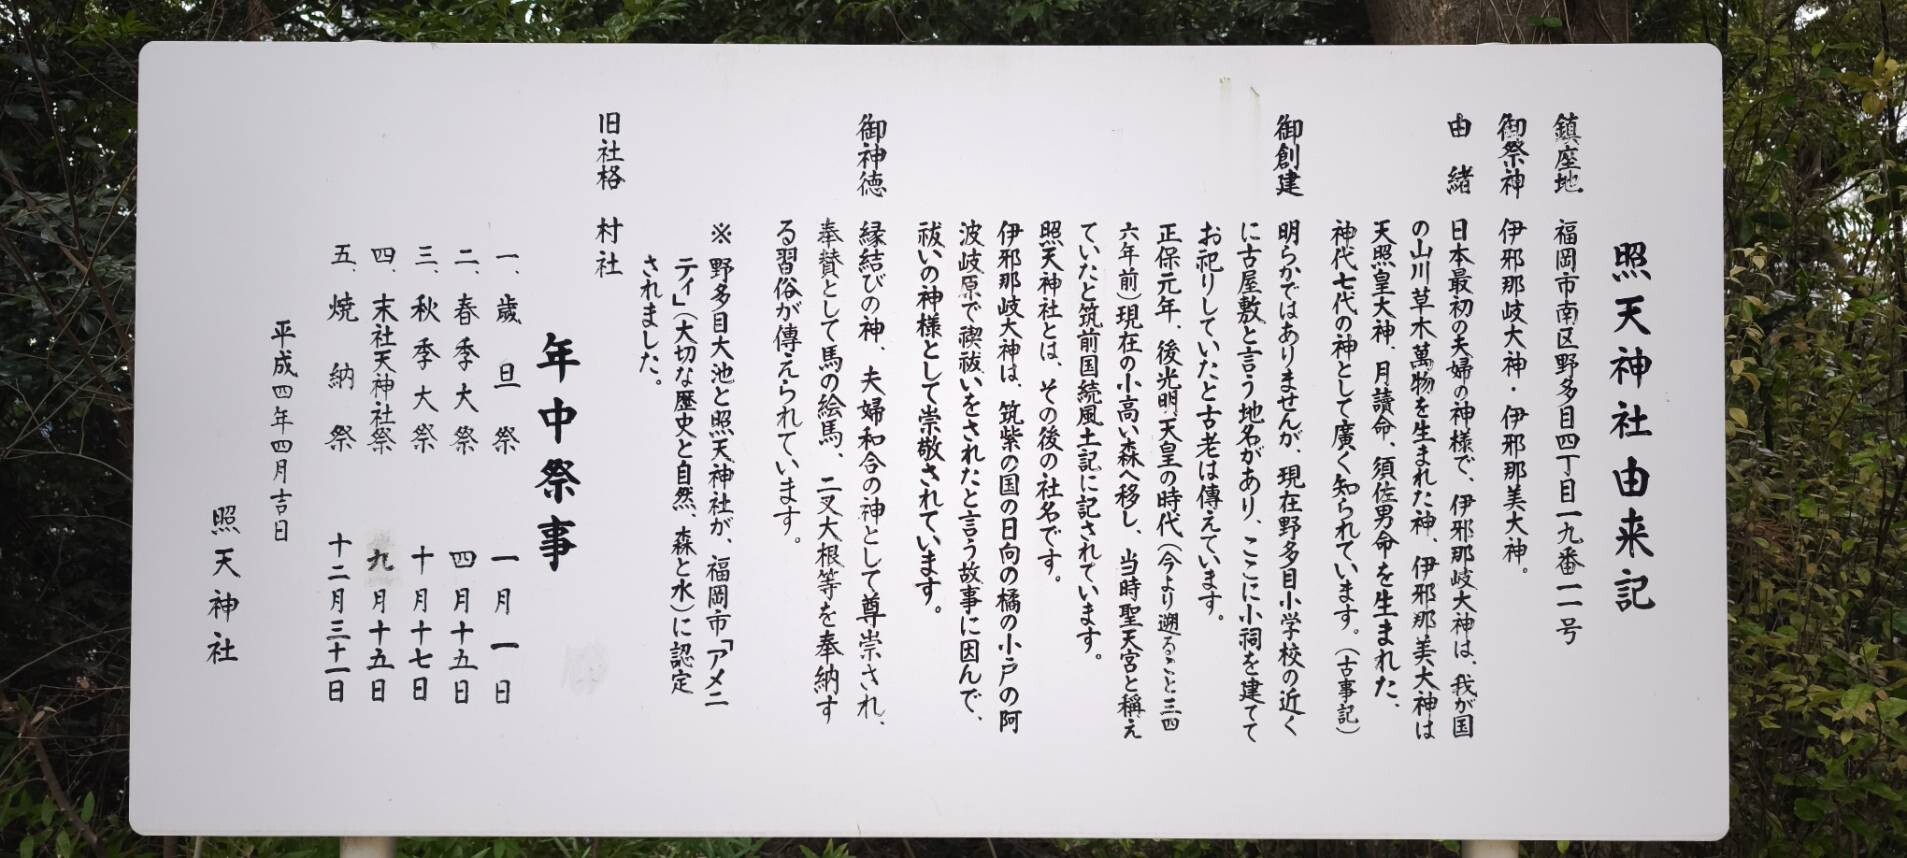 照天神社由来記
鎮座地 福岡市南区野多目四丁目一九番一一号
御祭神 伊邪那岐大神・伊邪那美大神。
由緒 日本最初の夫婦の神様で、伊邪那岐大神は、我が国
の山川草木萬物を生まれた神、伊邪那美大神は
天照皇大神、月讀命、須佐男命を生まれた、
神代七代の神として廣く知られています。（古事記）
御創建 明らかではありませんが、現在野多目小学校の近く
に古屋敷と言う地名があり、ここに小祠を建てて
お祀りしていたと古老は傳えています。
正保元年、後光明天皇の時代（今より遡ること三四
六年前）現在の小高い森へ移し、当時聖天宮と稱え
ていたと筑前国続風土記に記されています。
照天神社とは、その後の社名です。
伊邪那岐大神は、筑紫の国の日向の橘の小戸の阿
波岐原で禊祓いをされたと言う故事に因んで、
祓いの神様として崇敬されています。
御神徳 縁結びの神、夫婦和合の神として尊崇され、
奉賛として馬の絵馬、二叉大根等を奉納す
る習俗が傳えられています。
※野多目大池と照天神社が、福岡市「アメニ
ティ」（大切な歴史と自然、森と水）に認定
されました。
旧社格 村社
年中祭事
一、歳旦祭 一月一日
二、春季大祭 四月十五日
三、秋季大祭 十月十七日
四、末社天神社祭 九月十五日
五、焼納祭 十二月三十一日
平成四年四月吉日
照天神社